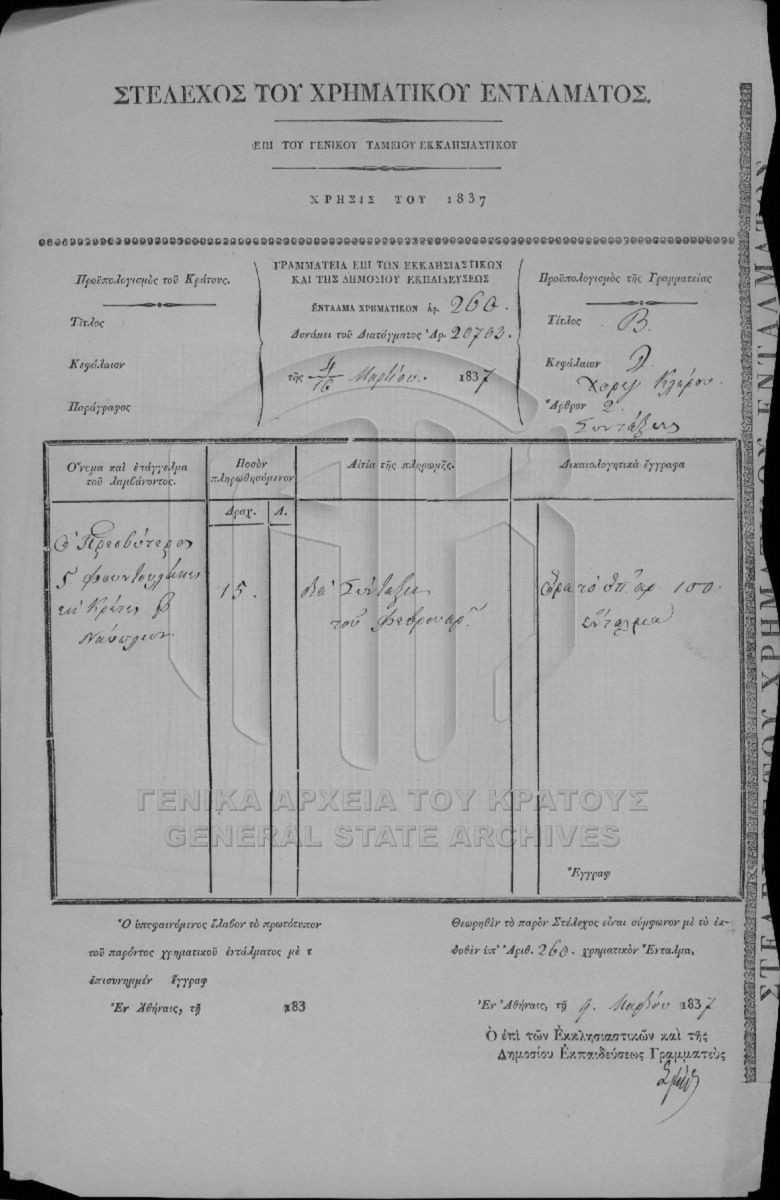 ΣΤΕΛΕΧΟΣ ΤΟΥ ΧΡΗΜΑΤΙΚΟΥ ΕΝΤΑΛΜΑΤΟΣ.
ΕΠΙ ΤΟΥ ΓΕΝΙΚΟΥ ΤΑΜΕΙΟΥ ΕΚΚΛΗΣΙΑΣΤΙΚΟΥ
ΧΡΗΣΙΣ ΤΟΥ 1837
Προϋπολογισμὸς τοῦ Κράτους.
Τίτλος
Κεφάλαιον
Παράγραφος
ΓΡΑΜΜΑΤΕΙΑ ΕΠΙ ΤΩΝ ΕΚΚΛΗΣΙΑΣΤΙΚΩΝ
ΚΑΙ ΤΗΣ ΔΗΜΟΣΙΟΥ ΕΚΠΑΙΔΕΥΣΕΩΣ
ΕΝΤΑΛΜΑ ΧΡΗΜΑΤΙΚΟΝ Ἀρ. 260.
Δυνάμει τοῦ Διατάγματος Ἀρ. 20703.
τῆς 4/16 Μαρτίου. 1837
Προϋπολογισμὸς τῆς Γραμματείας
Τίτλος Β.
Κεφάλαιον
Κλήρου
Ἄρθρον 2.
Συντάξεις
Ὄνομα καὶ ἐπάγγελμα
τοῦ λαμβάνοντος.
Ποσὸν
πληρωθησόμενον
Δραχ. Λ.
Αἰτία τῆς πληρωμῆς.
Δικαιολογητικὰ ἔγγραφα
Ὁ Πρεσβύτερος
ἐκ Κρήτης
Ναύπλιον
15.
διὰ Σύνταξιν
τοῦ Φεβρουαρ.
Ὅρα τὸ ὑπ' ἀρ. 100.
ἔνταλμα
Ἔγγραφ
Ὁ ὑπεφαινόμενος ἔλαβον τὸ πρωτότυπον
τοῦ παρόντος χρηματικοῦ ἐντάλματος μὲ τ
ἐπισυνημμέν ἔγγραφ
Ἐν Ἀθήναις, τῇ 183
Θεωρηθὲν τὸ παρὸν Στέλεχος εἶναι σύμφωνον μὲ τὸ ἐκ-
δοθὲν ὑπ' Ἀριθ. 260. χρηματικὸν Ἔνταλμα,
Ἐν Ἀθήναις, τῇ 9. Μαρτίου 1837
Ὁ ἐπὶ τῶν Ἐκκλησιαστικῶν καὶ τῆς
Δημοσίου Ἐκπαιδεύσεως Γραμματεὺς
ΓΕΝΙΚΑ ΑΡΧΕΙΑ ΤΟΥ ΚΡΑΤΟΥΣ
GENERAL STATE ARCHIVES
ΣΤΕΛΕΧΟΣ ΤΟΥ ΧΡΗΜΑΤΙΚΟΥ ΕΝΤΑΛΜΑΤΟΣ